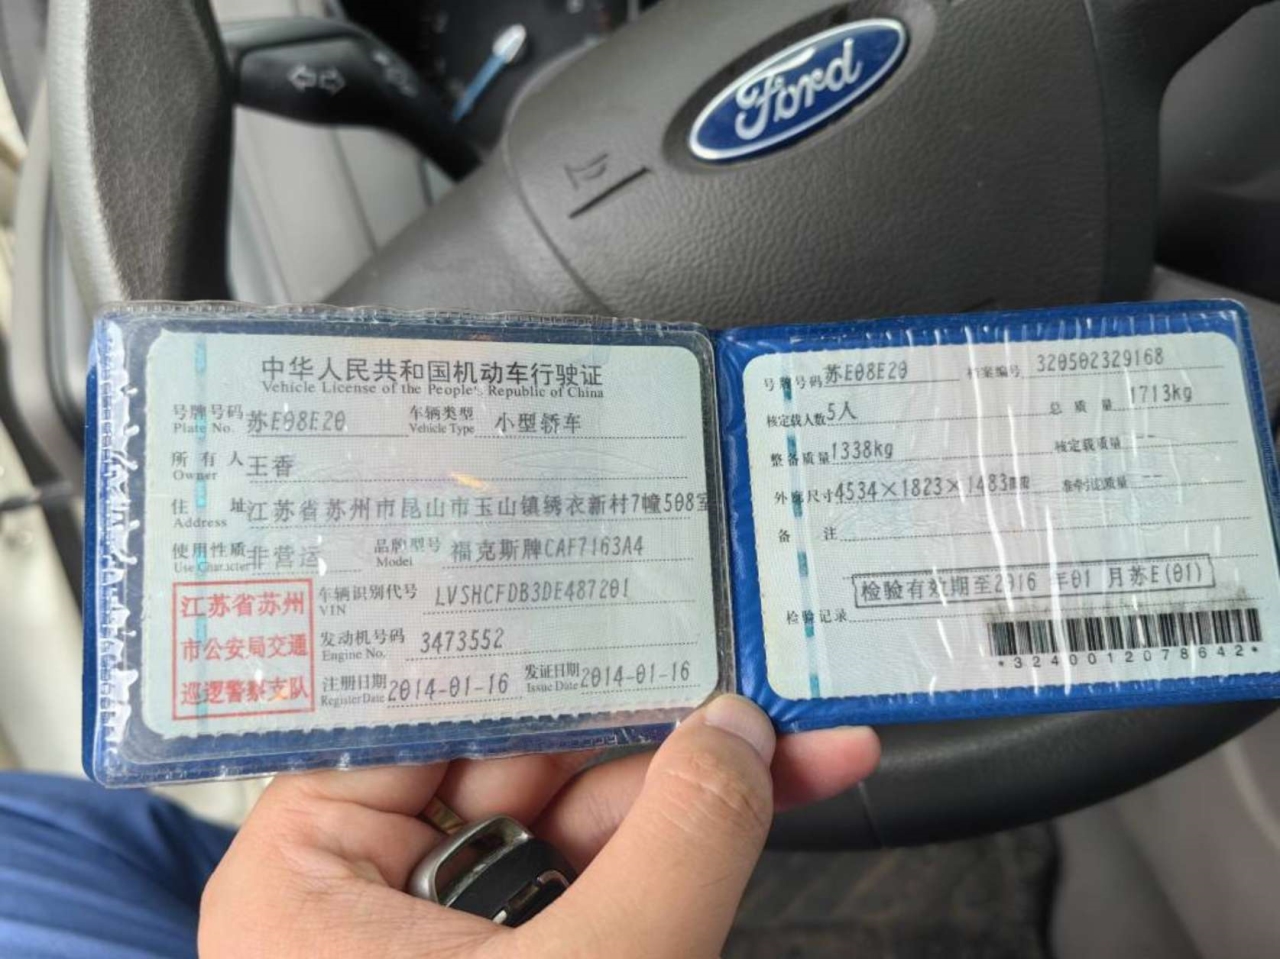 Ford
中华人民共和国机动车行驶证
Vehicle License of the People's Republic of China
号牌号码 苏E08E20 车辆类型 小型轿车
Plate No. Vehicle Type
所有人 王香
Owner
住址 江苏省苏州市昆山市玉山镇绣衣新村7幢508室
Address
使用性质 非营运 品牌型号 福克斯牌CAF7163A4
Use Character Model
江苏省苏州
市公安局交通
巡逻警察支队
车辆识别代号 LVSHCFDB3DE487201
VIN
发动机号码 3473552
Engine No.
注册日期 2014-01-16 发证日期 2014-01-16
Register Date Issue Date
号牌号码 苏E08E20 档案编号 320502329168
核定载人数 5人 总质量 1713kg
整备质量 1338kg 核定载质量 --
外廓尺寸 4534×1823×1483 质量 --
备注
检验有效期至2016年01月苏E(01)
检验记录
*3240012078642*